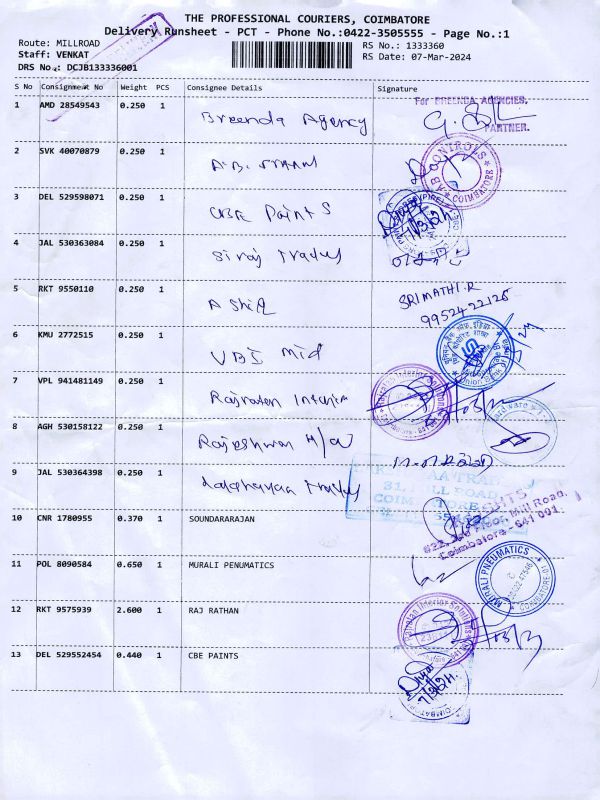 THE PROFESSIONAL COURIERS, COIMBATORE
Delivery Runsheet - PCT - Phone No.:0422-3505555 - Page No.:1
Route: MILLROAD
RS No.: 1333360
Staff: VENKAT
RS Date: 07-Mar-2024
DRS No.: DCJB133336001
S No Consignment No Weight PCS Consignee Details Signature
1 AMD 28549543 0.250 1 Breenda Agency
For BREENDA AGENCIES,
PARTNER.
2 SVK 40070879 0.250 1 A.B.
COIMBATORE
3 DEL 529598071 0.250 1 CBE Paints
4 JAL 530363084 0.250 1 Siraj Traders
5 RKT 9550110 0.250 1 Ashif
SRIMATHI.R
9952422125
6 KMU 2772515 0.250 1 UBI mid
7 VPL 941481149 0.250 1 Rajratan Interior
8 AGH 530158122 0.250 1 Rajeshwari H/W
9 JAL 530364398 0.250 1 Traders
31, MILL ROAD,
10 CNR 1780955 0.370 1 SOUNDARARAJAN
Mill Road,
Coimbatore - 641 001
11 POL 8090584 0.650 1 MURALI PENUMATICS
MURALI PNEUMATICS
COIMBATORE
12 RKT 9575939 2.600 1 RAJ RATHAN
Rajratan Interior Solutions
13 DEL 529552454 0.440 1 CBE PAINTS
7/3/24